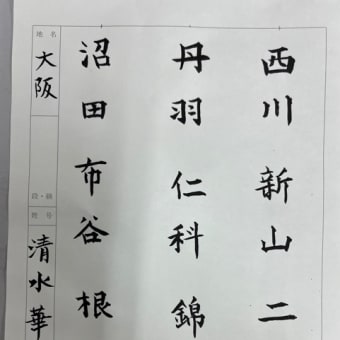 西川新山二
丹羽仁科錦
沼田布谷根
地名
大阪
段・級
姓号
清水華